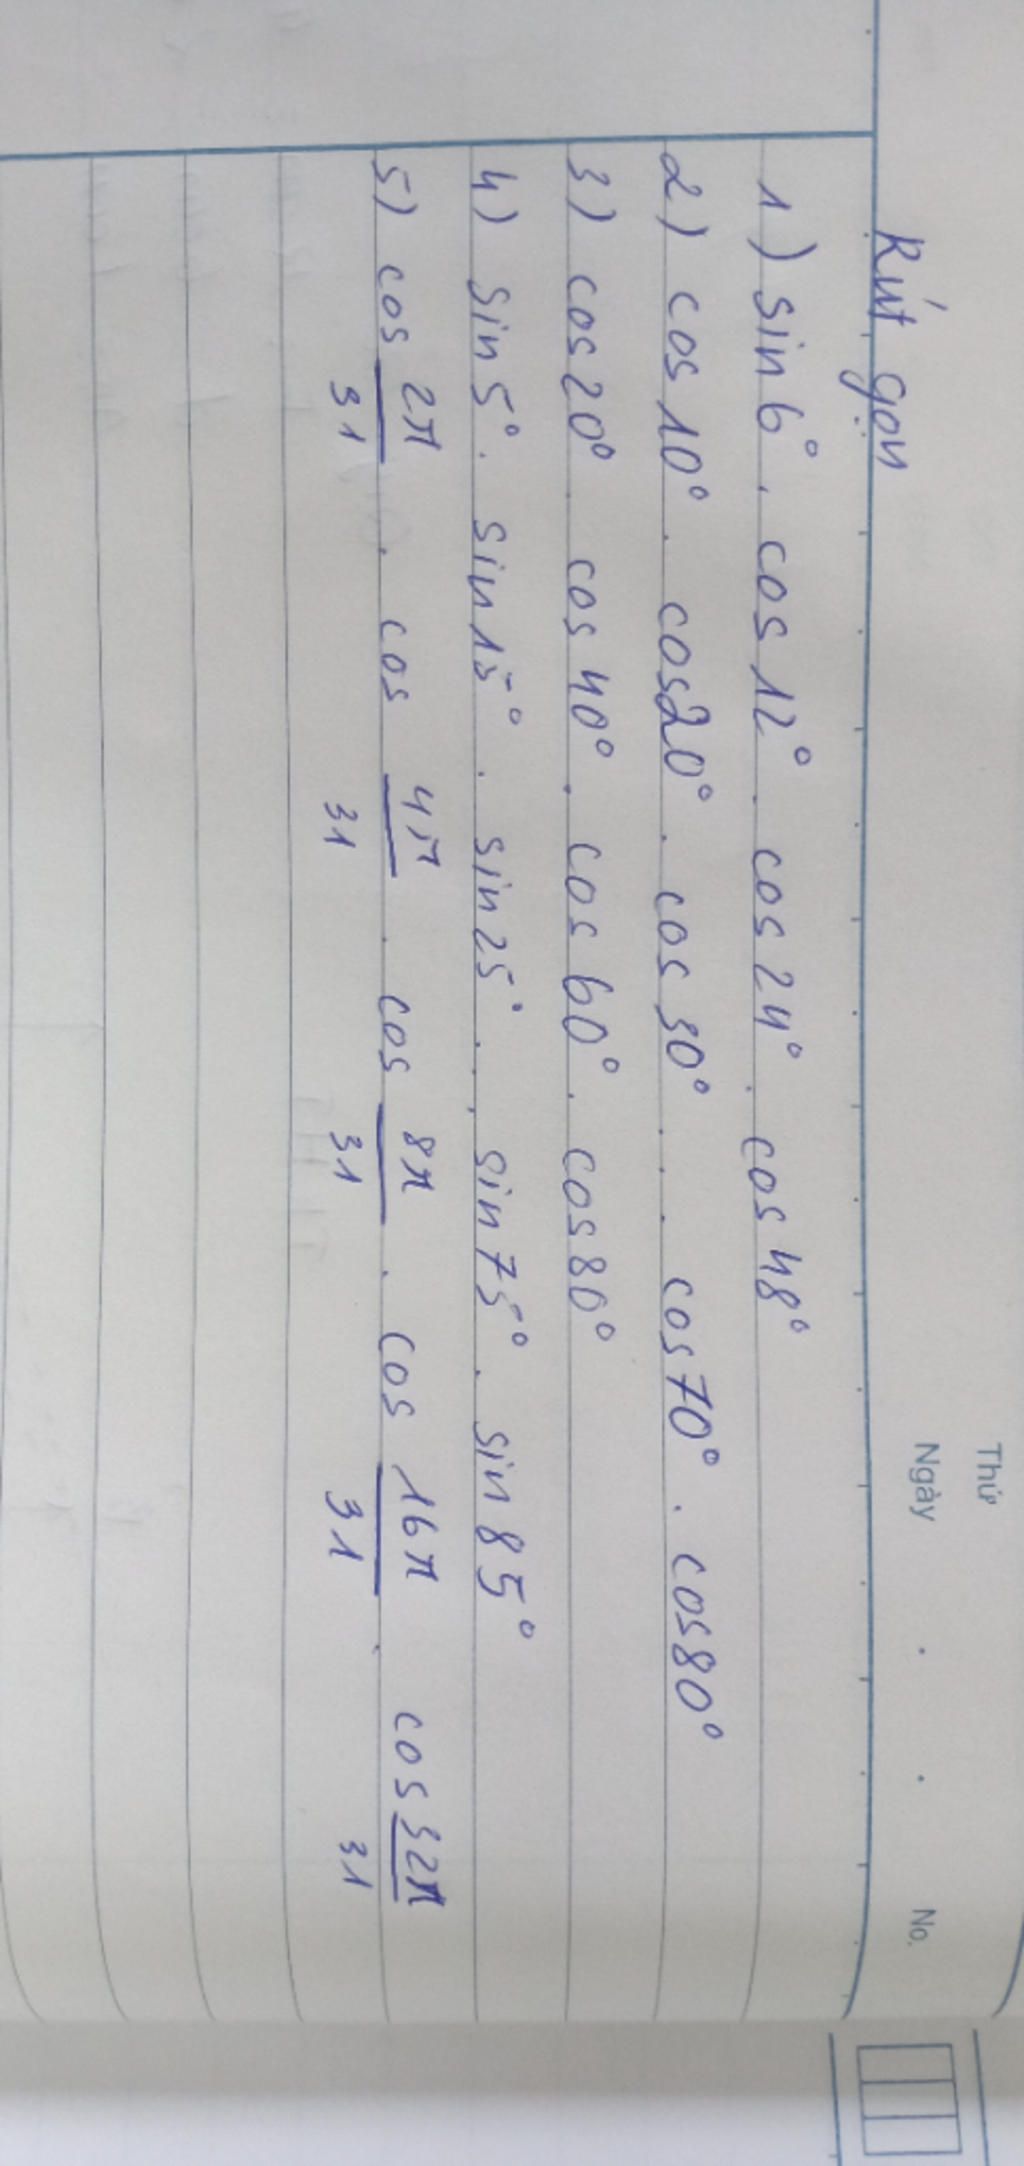 Thứ
Ngày . . No.
Rút gọn
1) sin 6° . cos 12° . cos 24° . cos 48°
2) cos 10° . cos 20° . cos 30° . . . cos 70° . cos 80°
3) cos 20° . cos 40° . cos 60° . cos 80°
4) sin 5° . sin 15° . sin 25° . . . sin 75° . sin 85°
5) cos 2π/31 . cos 4π/31 . cos 8π/31 . cos 16π/31 . cos 32π/31